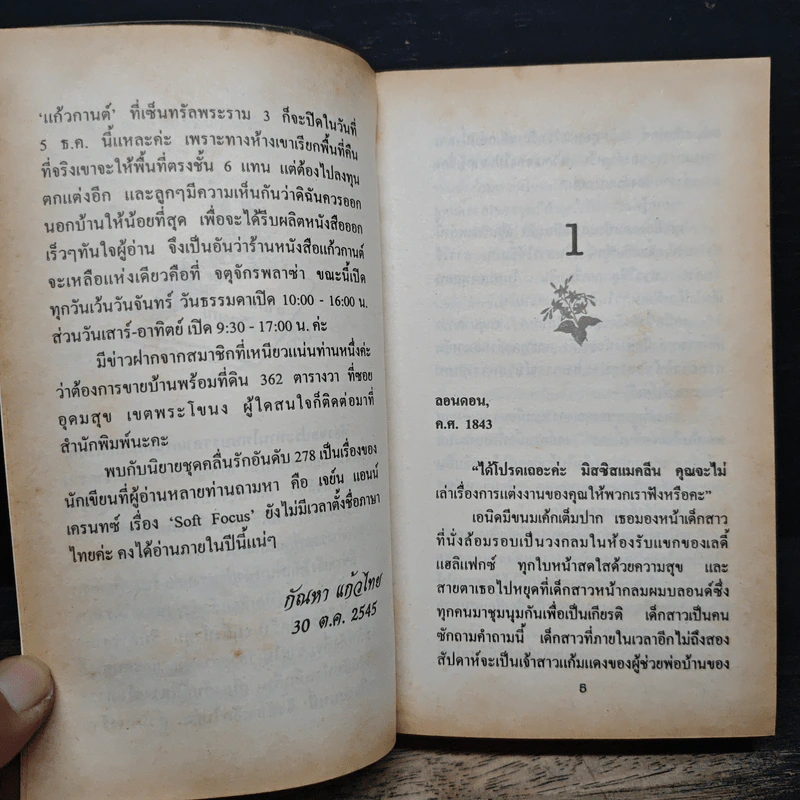 'แก้วกานต์' ที่เซ็นทรัลพระราม 3 ก็จะปิดในวันที่
5 ธ.ค. นี้แหละค่ะ เพราะทางห้างเขาเรียกพื้นที่คืน
ที่จริงเขาจะให้พื้นที่ตรงชั้น 6 แทน แต่ต้องไปลงทุน
ตกแต่งอีก และลูกๆมีความเห็นกันว่าดิฉันควรออก
นอกบ้านให้น้อยที่สุด เพื่อจะได้รีบผลิตหนังสือออก
เร็วๆทันใจผู้อ่าน จึงเป็นอันว่าร้านหนังสือแก้วกานต์
จะเหลือแห่งเดียวคือที่ จตุจักรพลาซ่า ขณะนี้เปิด
ทุกวันเว้นวันจันทร์ วันธรรมดาเปิด 10:00 - 16:00 น.
ส่วนวันเสาร์-อาทิตย์ เปิด 9:30 - 17:00 น. ค่ะ
มีข่าวฝากจากสมาชิกที่เหนียวแน่นท่านหนึ่งค่ะ
ว่าต้องการขายบ้านพร้อมที่ดิน 362 ตารางวา ที่ซอย
อุดมสุข เขตพระโขนง ผู้ใดสนใจก็ติดต่อมาที่
สำนักพิมพ์นะคะ
พบกับนิยายชุดคลื่นรักอันดับ 278 เป็นเรื่องของ
นักเขียนที่ผู้อ่านหลายท่านถามหา คือ เจย์น แอนน์
เครนทซ์ เรื่อง 'Soft Focus' ยังไม่มีเวลาตั้งชื่อภาษา
ไทยค่ะ คงได้อ่านภายในปีนี้แน่ๆ
กัณหา แก้วไทย
30 ต.ค. 2545
1
ลอนดอน,
ค.ศ. 1843
"ได้โปรดเถอะค่ะ มิสซิสแมคลีน คุณจะไม่
เล่าเรื่องการแต่งงานของคุณให้พวกเราฟังหรือคะ"
เอนิดมีขนมเค้กเต็มปาก เธอมองหน้าเด็กสาว
ที่นั่งล้อมรอบเป็นวงกลมในห้องรับแขกของเลดี้
แฮลิแฟกซ์ ทุกใบหน้าสดใสด้วยความสุข และ
สายตาเธอไปหยุดที่เด็กสาวหน้ากลมผมบลอนด์ซึ่ง
ทุกคนมาชุมนุมกันเพื่อเป็นเกียรติ เด็กสาวเป็นคน
ซักถามคำถามนี้ เด็กสาวที่ภายในเวลาอีกไม่ถึงสอง
สัปดาห์จะเป็นเจ้าสาวแก้มแดงของผู้ช่วยพ่อบ้านของ
5